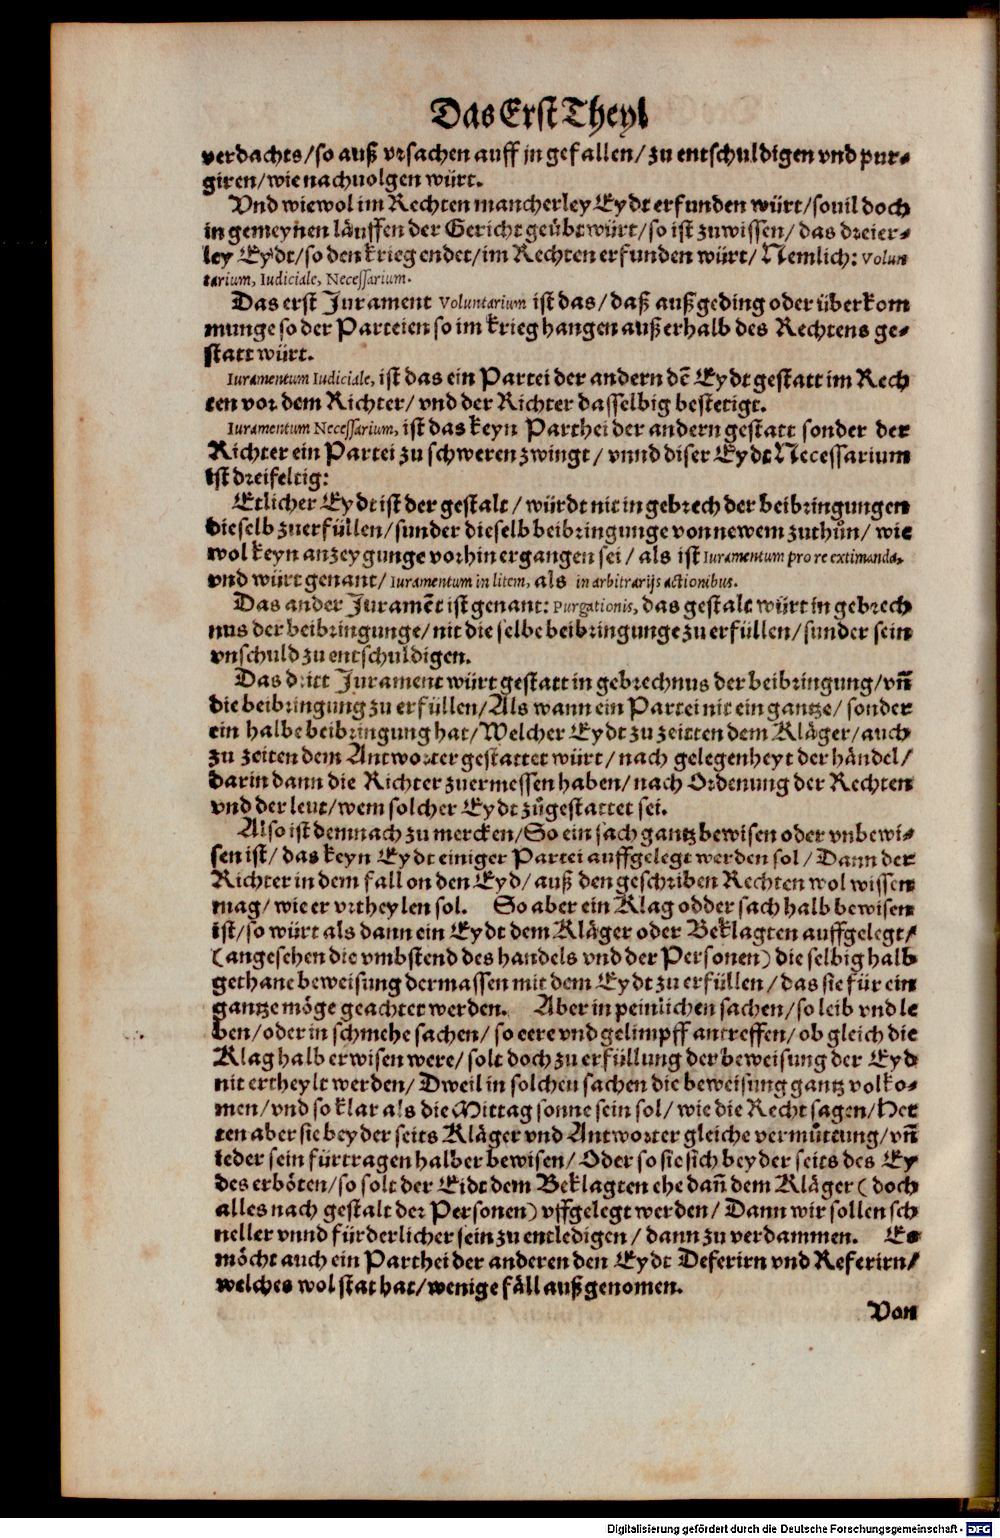 Das Erst Theyl
verdachts/so auß vrsachen auff jn gefallen/zu entschuldigen vnd pur⸗
giren/wie nachuolgen würt.
Vnd wiewol im Rechten mancherley Eydt erfunden würt/souil doch
in gemeynen läuffen der Gericht geübt würt/so ist zuwissen/das dreier⸗
ley Eydt/so den krieg endet/im Rechten erfunden würt/Nemlich: Volun
tarium, Iudiciale, Necessarium.
Das erst Jurament Voluntarium ist das/daß auß geding oder überkom
munge so der Parteien so im krieg hangen ausserhalb des Rechtens ge⸗
statt würt.
Iuramentum Iudiciale, ist das ein Partei der andern dē Eydt gestatt im Rech
ten vor dem Richter/vnd der Richter dasselbig bestetigt.
Iuramentum Necessarium, ist das keyn Parthei der andern gestatt sonder der
Richter ein Partei zu schweren zwingt/vnnd diser Eydt Necessarium
ist dreifeltig:
Etlicher Eydt ist der gestalt/würdt nit in gebrech der beibringungen
dieselb zuerfüllen/sunder dieselb beibringunge von newem zuthůn/wie
wol keyn anzeygunge vorhin ergangen sei/als ist Iuramentum pro re extimanda,
vnd würt genant/Iuramentum in litem, als in arbitrarijs actionibus.
Das ander Juramēt ist genant: Purgationis, das gestalt würt in gebrech
nus der beibringunge/nit die selbe beibringunge zu erfüllen/sunder sein
vnschuld zu entschuldigen.
Das dritt Jurament würt gestatt in gebrechnus der beibringung/vñ
die beibringung zu erfüllen/Als wann ein Partei nit ein gantze/sonder
ein halbe beibringung hat/Welcher Eydt zu zeitten dem Kläger/auch
zu zeiten dem Antworter gestattet würt/nach gelegenheyt der händel/
darin dann die Richter zuermessen haben/nach Ordenung der Rechten
vnd der leut/wem solcher Eydt zůgestattet sei.
Also ist demnach zu mercken/So ein sach gantz bewisen oder vnbewi⸗
sen ist/das keyn Eydt einiger Partei auffgelegt werden sol/Dann der
Richter in dem fall on den Eyd/auß den geschriben Rechten wol wissen
mag/wie er vrtheylen sol. So aber ein Klag odder sach halb bewisen
ist/so würt als dann ein Eydt dem Kläger oder Beklagten auffgelegt/
(angesehen die vmbstend des handels vnd der Personen) die selbig halb
gethane beweisung dermassen mit dem Eydt zu erfüllen/das sie für ein
gantze möge geachtet werden. Aber in peinlichen sachen/so leib vnd le
ben/oder in schmehe sachen/so eere vnd gelimpff antreffen/ob gleich die
Klag halb erwisen were/solt doch zu erfüllung der beweisung der Eyd
nit ertheylt werden/Dweil in solchen sachen die beweisung gantz volko⸗
men/vnd so klar als die Mittag sonne sein sol/wie die Recht sagen/Het
ten aber sie beyder seits Kläger vnd Antworter gleiche vermůttung/vñ
ieder sein fürtragen halber bewisen/Oder so sie sich beyder seits des Ey
des erböten/so solt der Eidt dem Beklagten ehe dañ dem Kläger (doch
alles nach gestalt der Personen) vffgelegt werden/Dann wir sollen sch
neller vnnd fürderlicher sein zu entledigen/dann zu verdammen. Es
möcht auch ein Parthei der anderen den Eydt Deferirn vnd Referirn/
welches wol stat hat/wenige fäll außgenomen.
Von
Digitalisierung gefördert durch die Deutsche Forschungsgemeinschaft - DFG